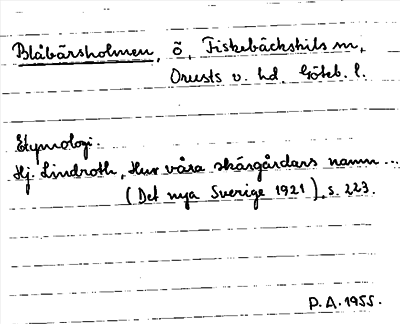 Blåbärsholmen, ö, Fiskebäckskils sn,
Orusts v. hd. Göteb. l.
Etymologi.
Hj. Lindroth, Hur våra skärgårdars namn ...
(Det nya Sverige 1921), s. 223.
P.A. 1955.